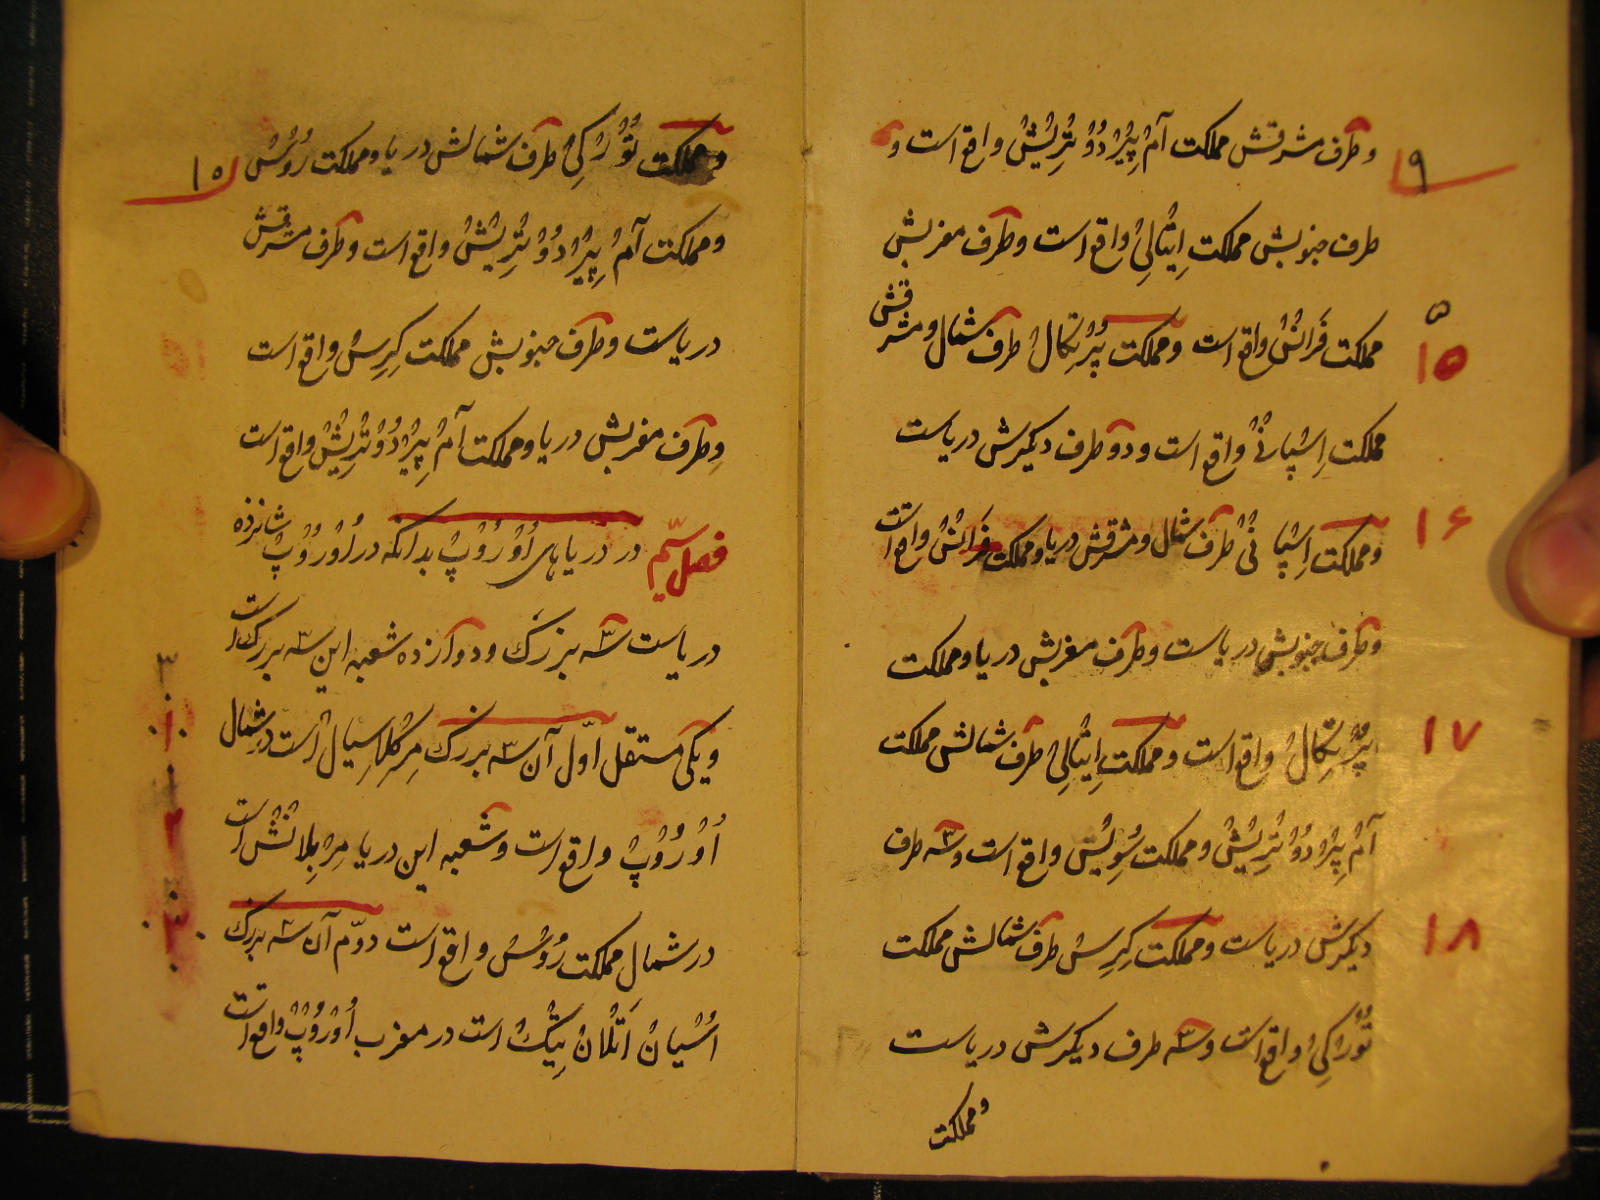 وطرف مشرقش مملکت آمْ پِیْرْ دُوْ تْرِیْشْ واقع است و
۹
طرف جنوبش مملکت اِیْتالِیْ واقع است وطرف مغربش
مملکت فَرانْسْ واقع است ومملکت پُرْتکالْ طرف شمال ومشرقش
۱۵
مملکت اِسْپانیْ واقع است ودو طرف دیکرش دریاست
ومملکت اِسْپانیْ طرف شمال ومشرقش دریا ومملکت فَرانْسْ واقع است
۱۶
وطرف جنوبش دریاست وطرف مغربش دریا ومملکت
پُرْتِکالْ واقع است ومملکت اِیْتالِیْ طرف شمالش مملکت
۱۷
آمْ پِیْرْ دُوْ تْرِیْشْ ومملکت سُوِیْسْ واقع است وسه طرف
دیکرش دریاست ومملکت کِرِسْ طرف شمالش مملکت
۱۸
تُوْرْکِیْ واقع است وسه طرف دیکرش دریاست
ومملکت
ومملکت تُوْرْکِیْ طرف شمالش دریا ومملکت رُوْسْ
۱۵
ومملکت آمْ پِیْرْ دُوْ تْرِیْشْ واقع است وطرف مشرقش
دریاست وطرف جنوبش مملکت کِرِسْ واقع است
وطرف مغربش دریا ومملکت آمْ پِیْرْ دُوْ تْرِیْشْ واقع است
فصل سیّم در دریاهای اُوْرُوْپْ بدانکه در اُوْرُوْپْ شانزده
دریاست سه بزرک ودوازده شعبه این سه بزرک است
ویکی مستقل اوّل آن سه بزرک مِرْ کْلاسیالْ است در شمال
اُوْرُوْپْ واقع است وشعبه این دریا مِرْ بِلانْشْ است
در شمال مملکت رُوْسْ واقع است دوّم آن سه بزرک
اُسْیانْ اَتْلانْتِیْکْ است در مغرب اُوْرُوْپْ واقع است